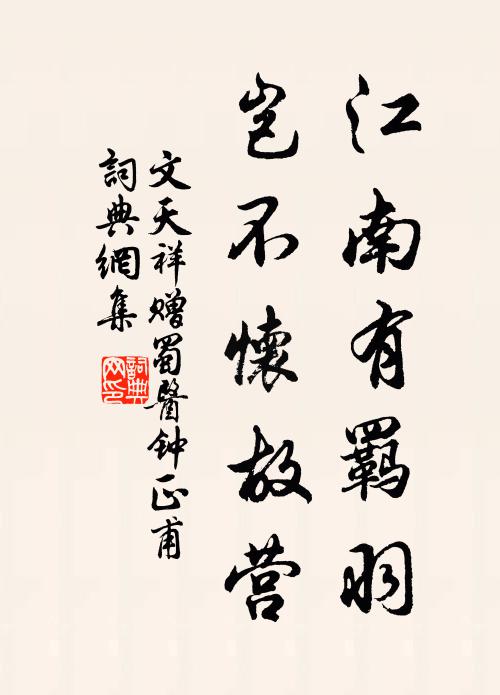 江南有羁羽
岂不懷故营
文天祥赠蜀醫钟正甫
詞典網集
詞典網印